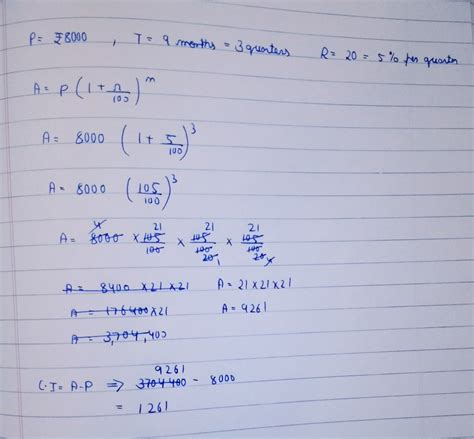 P= ₹8000 , T= 9 months = 3 quarters R= 20 = 5% per quarter
A= P (1 + r/100)^n
A= 8000 (1 + 5/100)^3
A= 8000 (105/100)^3
4 21 21 21
A= 8000 × 105/100 × 105/100 × 105/100
20 1 20 4
A= 8400 ×21 ×21 A= 21 ×21 ×21
A= 176400 ×21 A= 9261
A= 3,704,400
9261
C.I= A-P ⇒ 3704400 - 8000
= 1261